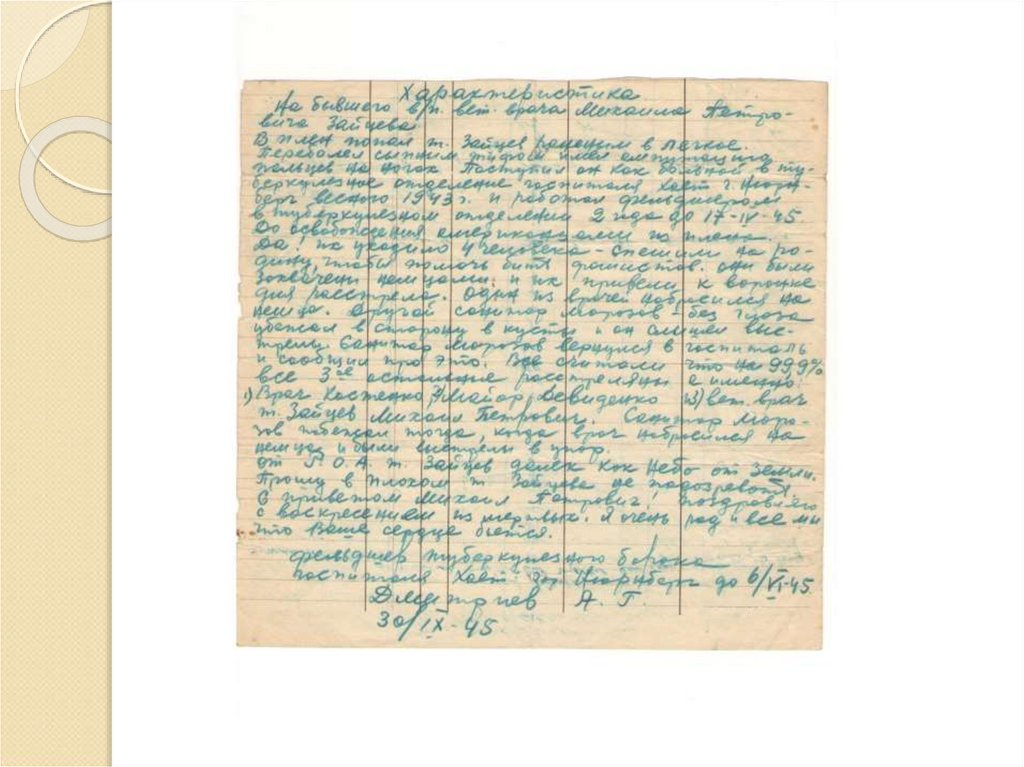 Характеристика
На бывшего в/п. вет. врача Михаила Петро-
вича Зайцева.
В плен попал т. Зайцев раненым в легкое.
Переболел сыпным тифом имел ампутацию
пальцев на ногах. Поступил он как больной в ту-
беркулезное отделение госпиталя Хаст г. Нюрн-
берг весною 1943 г. и работал фельдшером
в туберкулезном отделении 2 года до 17-IV-45
До освобождения американцами из плена.
Да! уходило 4 человека - спешили на ро-
дину, чтобы помочь бить фашистов. они были
захвачены немцами. и их привели к воронке
для расстрела. Один из врачей набросился на
немца. Другой санитар Морозов - без глаза
убежал в сторону в кусты и он слышал выс-
трелы. Санитар Морозов вернулся в госпиталь
и сообщил про это. Все считали что на 99,9%
все 3ое остальные расстреляны а именно:
1) Врач Костенко, 2) Майор Девиденко и 3) вет. врач
т. Зайцев Михаил Петрович. Санитар Моро-
зов побежал тогда, когда врач набросился на
немца и были выстрелы в упор.
от Р.О.А. т. Зайцев далек как небо от земли.
Прошу в плохом т. Зайцева не подозревать.
С приветом Михаил Петрович! Поздравляю
с воскресением из мертвых. Я очень рад и все мы
что Ваше сердце бьется.
фельдшер туберкулезного барака
госпиталя Хаст гор. Нюрнберг до 6/VI-45
Дмитриев А. Г.
30/IX-45